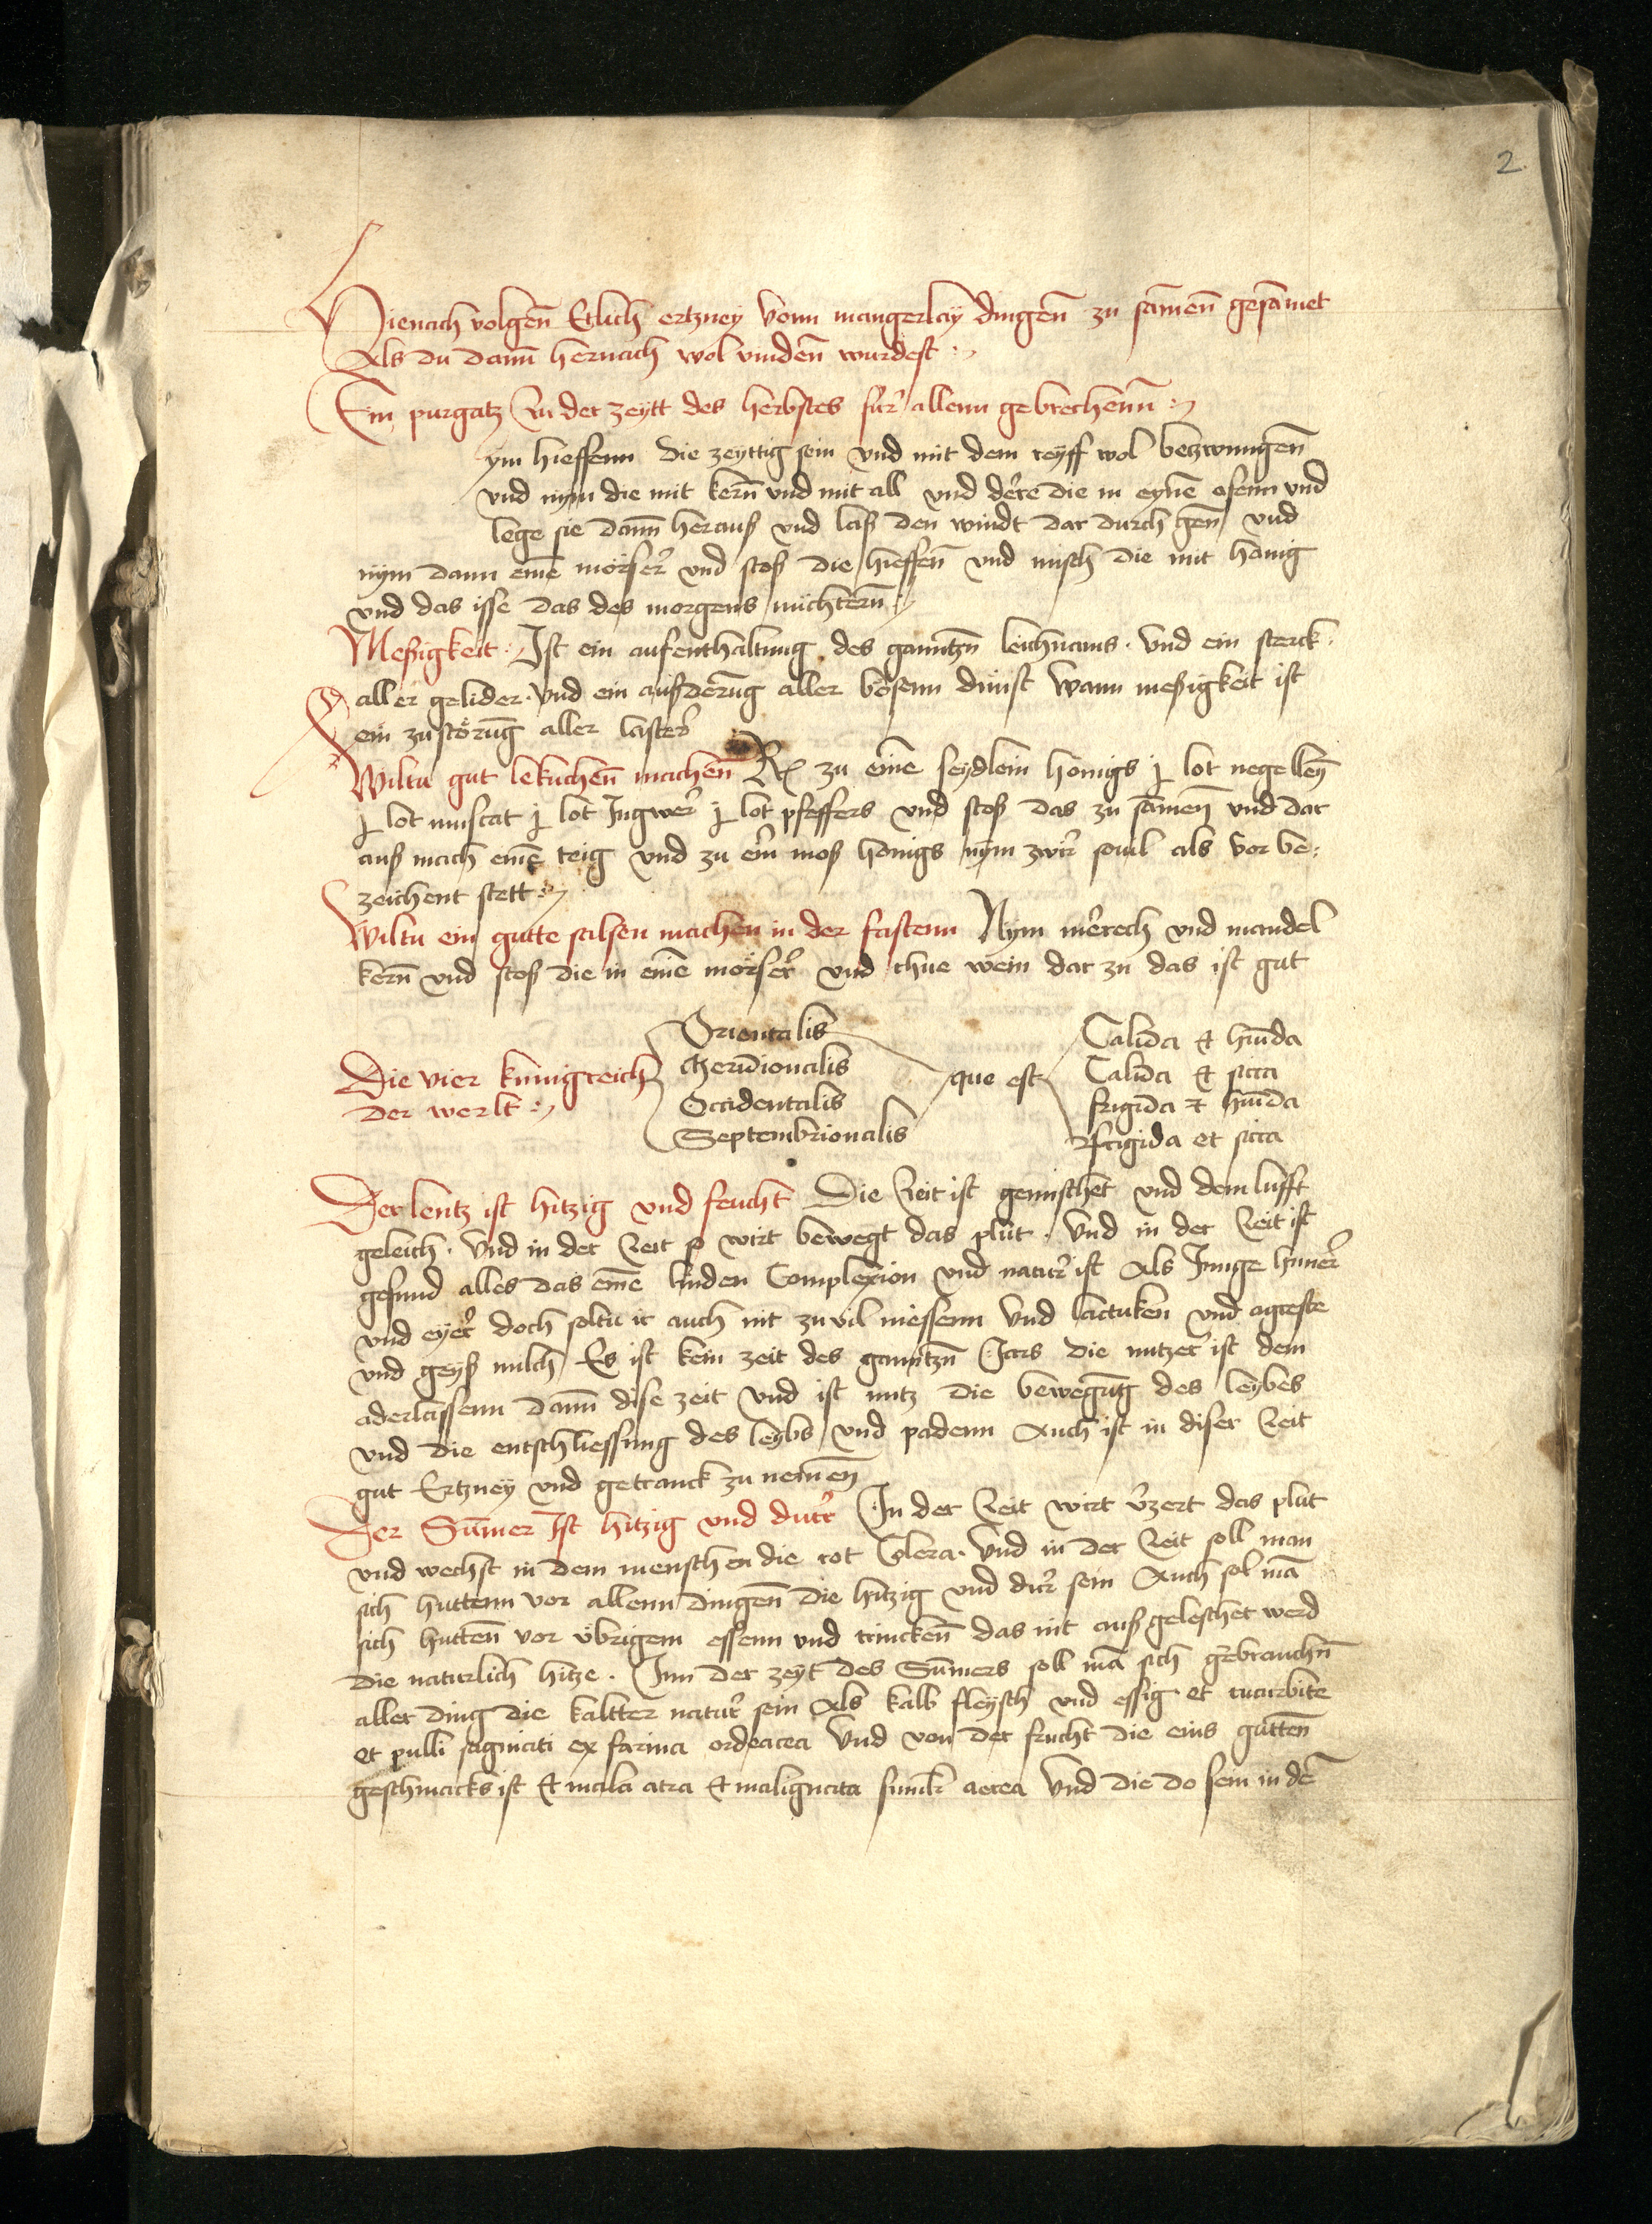 2
Hienach volgen̄ Etlich ertzney vonn mangerlay dingen̄ zu sāmen̄ gesāmet
Als du dann̄ hernach wol vinden̄ wurdest
Ein purgatz in der zeytt des herbstes fur allenn gebrechenn̄
ym hieffenn die zeyttig sein vnd mit dem reyff wol betzwungen̄
vnd nym die mit kern̄ vnd mit all vnd dere die in eynē ofenn vnd
lege sie dann̄ herauß vnd laß den windt dar durch gen̄ vnd
nym dann einē mörser vnd stoß die hieffen̄ vnd misch die mit honig
vnd das isse das des morgens nüchtern̄
Meßigkeit · Ist ein aufenthaltung des ganntzn̄ leichnams · vnd ein sterck
aller gelider · vnd ein außderūg aller bösenn dünst wann meßigkeit ist
ein zustörūg aller laster
Wiltu gut lekuchen̄ machen̄ Rc zu einē seydlein honigs j lot negelley̅
j lot muscat j lot Jngwer j lot pfeffers vnd stoß das zu sāmen̄ vnd dar
auß mach einē teig vnd zu eīm moß honigs nym zwir souil als vor be:
zeichent stett
Wiltu ein gutte salsen machen in der fastenn Nym merrech vnd mandel
kern̄ vnd stoß die in einē mörser vnd thue wein dar zu das ist gut
Die vier kunigreich
der werlt
Orientalis
Meridionalis
Occidentalis
Septembrionalis
que est
Calida et huīda
Calida et sicca
frigida et huīda
frigida et sicca
Der lentz ist hitzig vnd feucht Die Zeit ist gemischet vnd dem lufft
geleich · vnd in der Zeit so wirt bewegt das plut · vnd in der Zeit ist
gesund alles das einē linden Complexion vnd natur ist Als Junge huner
vnd eyer doch soltu ir auch nit zuvil niessenn vnd lactuken vnd agreste
vnd geyß milch Es ist kein zeit des ganntzn̄ Jars die nutzer ist dem
aderlassenn dann̄ dise zeit vnd ist nutz die bewegūg des leybes
vnd die entschliessung des leybs vnd padenn Auch ist in diser Zeit
gut Ertzney vnd getranck zu nemen̄
Der Sūmer Ist hitzig vnd durr In der Zeit wirt v̄zert das plut
vnd wechst in dem menschen die rot Colera · vnd in der Zeit soll man
sich huttenn vor allenn dingen̄ die hitzig vnd dur sein Auch sol mā
sich hutten̄ vor übrigem essenn vnd trincken̄ das nit auß geleschet werd
die naturlich hitze · Inn der zeyt des Sūmers soll mā sich gebrauchn̄
aller ding die kaltter natur sein Als kalb fleysch vnd essig et cucurbite
et pulli saginati ex farina ordeacea vnd von der frucht die eins gutten̄
geschmacks ist Et mala atra Et malignata aerea vnd die do sein in de